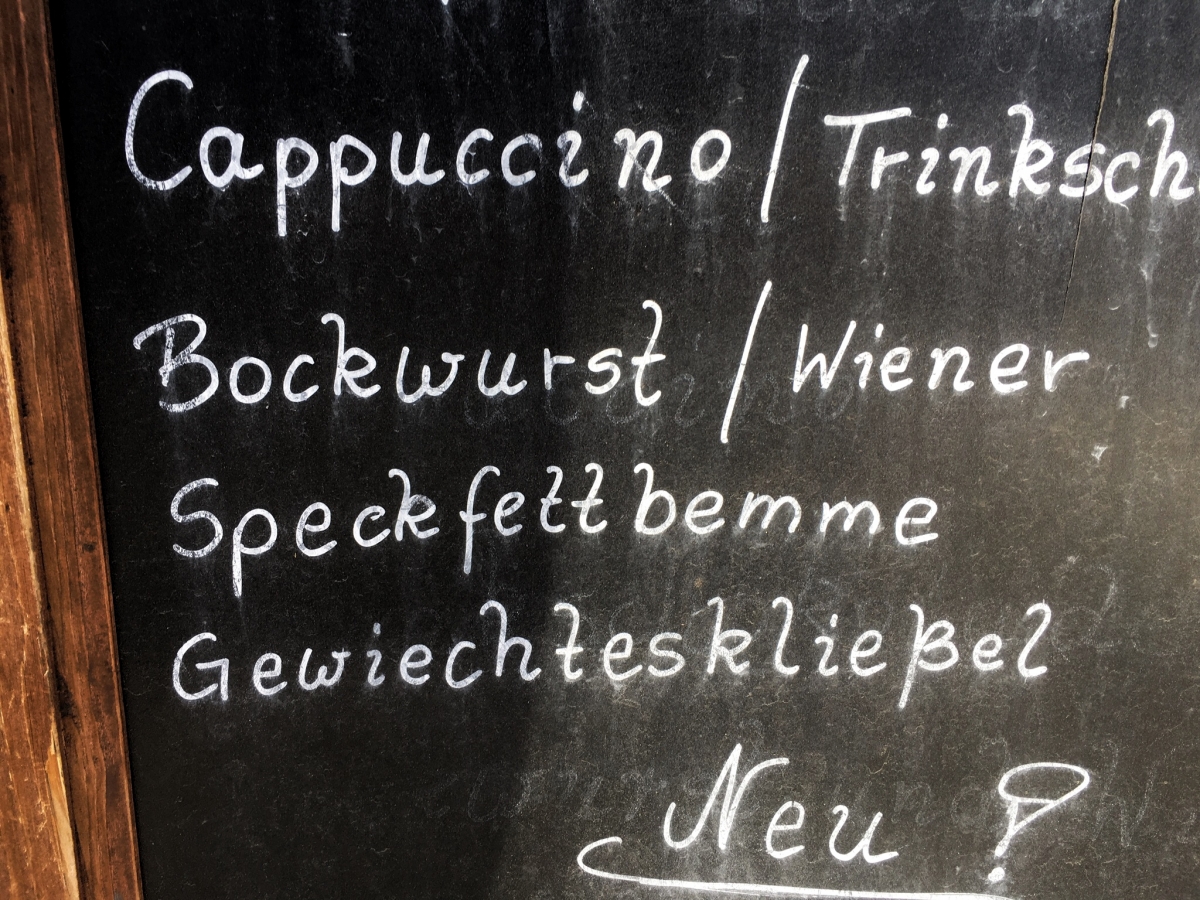 Cappuccino / Trinksch
Bockwurst / Wiener
Speckfettbemme
Gewiechteskließel
Neu !